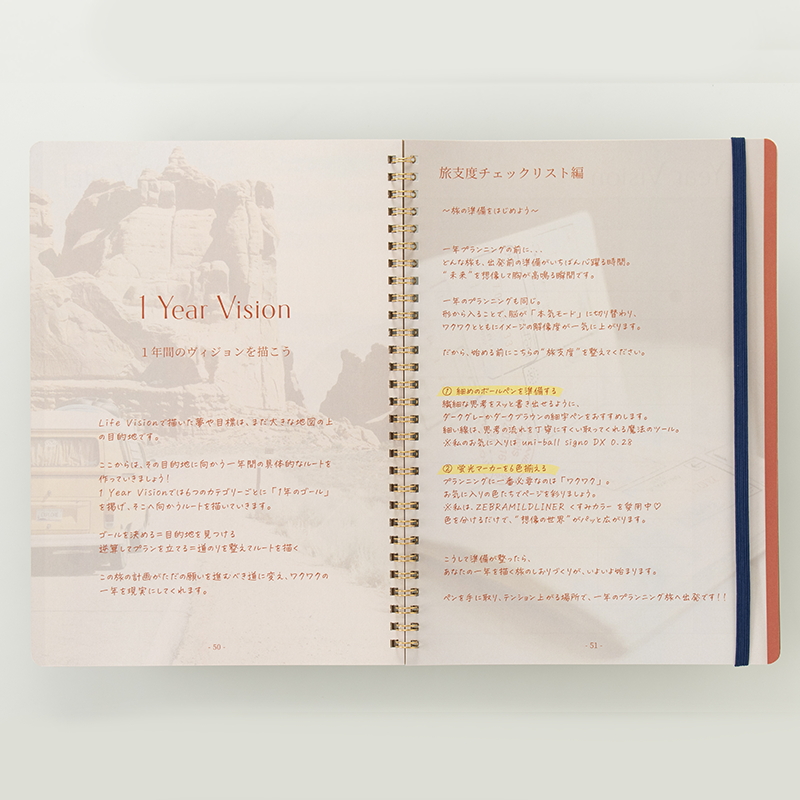 1 Year Vision
1年間のヴィジョンを描こう
Life Visionで描いた夢や目標は、まだ大きな地図の上
の目的地です。
ここからは、その目的地に向かう一年間の具体的なルートを
作っていきましょう！
1 Year Visionでは6つのカテゴリーごとに「1年のゴール」
を掲げ、そこへ向かうルートを描いていきます。
ゴールを決める＝目的地を見つける
逆算してプランを立てる＝道のりを整えてルートを描く
この旅の計画がただの願いを進むべき道に変え、ワクワクの
一年を現実にしてくれます。
- 50 -
旅支度チェックリスト編
〜旅の準備をはじめよう〜
一年プランニングの前に...
どんな旅も、出発前の準備がいちばん心躍る時間。
“未来”を想像して胸が高鳴る瞬間です。
一年のプランニングも同じ。
形から入ることで、脳が「本気モード」に切り替わり、
ワクワクとともにイメージの解像度が一気に上がります。
だから、始める前にこちらの“旅支度”を整えてください。
① 細めのボールペンを準備する
繊細な思考をスッと書き出せるように、
ダークグレーかダークブラウンの細字ペンをおすすめします。
細い線は、思考の流れを丁寧にすくい取ってくれる魔法のツール。
※私のお気に入りは uni-ball signo DX 0.28
② 蛍光マーカーを6色揃える
プランニングに一番必要なのは「ワクワク」。
お気に入りの色たちでページを彩りましょう。
※私は、ZEBRAMILDLINER くすみカラー を愛用中♡
色を分けるだけで、“想像の世界”がパッと広がります。
こうして準備が整ったら、
あなたの一年を描く旅のしおりづくりが、いよいよ始まります。
ペンを手に取り、テンション上がる場所で、一年のプランニング旅へ出発です！！
- 51 -